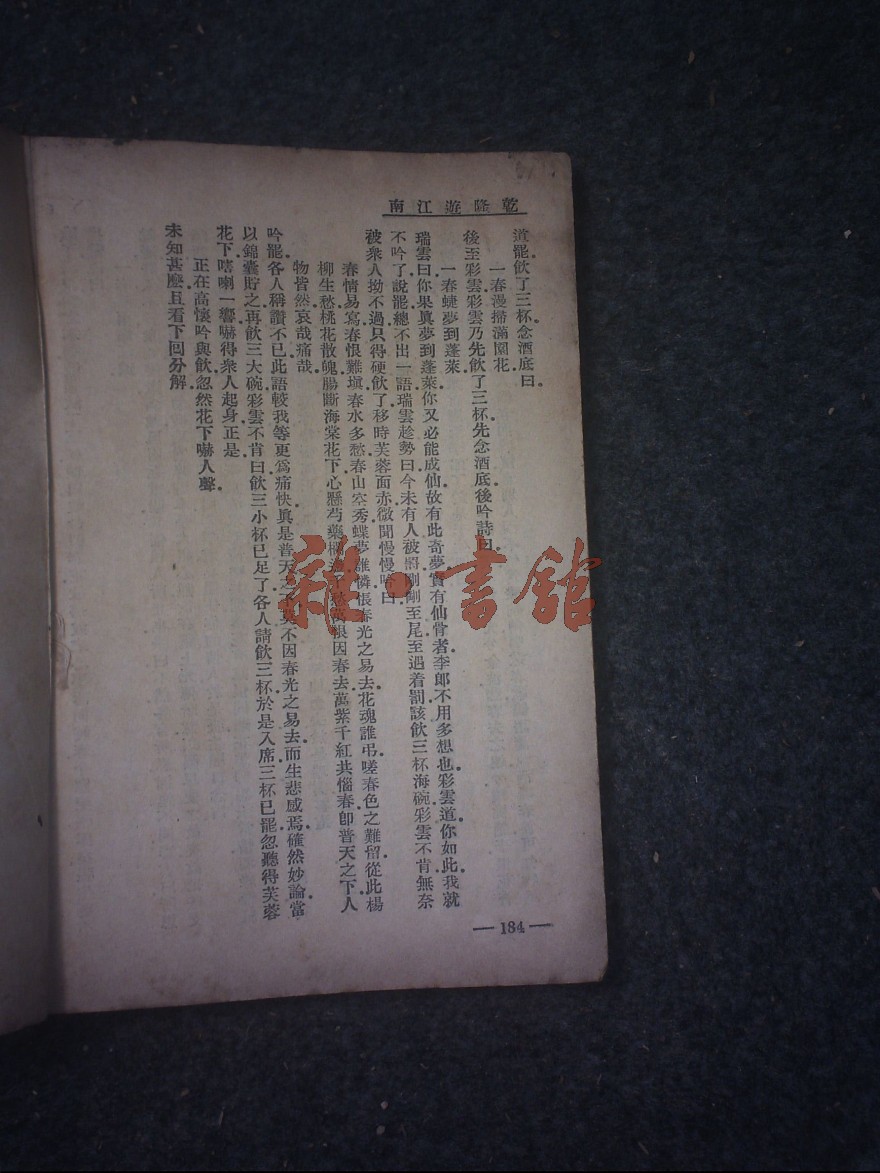 乾隆遊江南
道罷。飲了三杯。念酒底曰。
一春漫掃滿園花。
後至彩雲。彩雲乃先飲了三杯。先念酒底。後吟詩曰。
一春蜨夢到蓬萊。
瑞雲曰。你果眞夢到蓬萊。你又必能成仙。故有此奇夢。實有仙骨者。李郎不用多想也。彩雲道。你如此。我就
不吟了。說罷。總不出一語。瑞雲趁勢曰。今未有人被罰。剛剛至尾。至遇着罰。該飲三杯海碗。彩雲不肯。無奈
被衆人拗不過。只得硬飲了。移時芙蓉面赤。微聞慢慢吟曰。
春情易寫。春恨難塡。春水多愁。春山空秀。蝶夢誰憐。悵春光之易去。花魂誰弔。嗟春色之難留。從此楊
柳生愁。桃花散魄。腸斷海棠花下。心懸芍藥欄恨因春去。萬紫千紅共惱春。卽普天之下。人
物皆然。哀哉痛哉。
吟罷。各人稱讚不已。此語較我等更爲痛快。眞是普天之不因春光之易去。而生悲感焉。確然妙論。當
以錦囊貯之。再飲三大碗。彩雲不肯。曰。飲三小杯已足了。各人請飲三杯。於是入席。三杯已罷。忽聽得芙蓉
花下。嘻喇一響。嚇得衆人起身。正是
正在高懷吟與飲。忽然花下嚇人聲。
未知甚麽。且看下回分解。
— 184 —
雜·書館